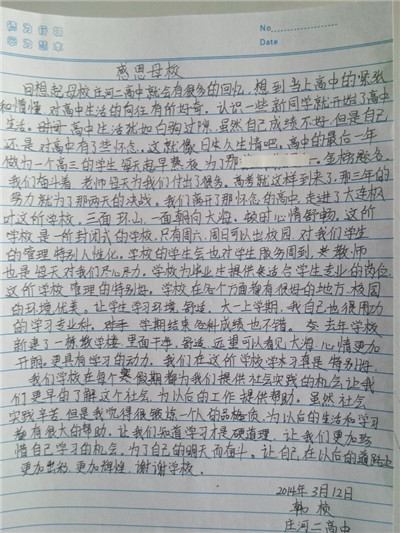 No.
Date
感恩母校
回想起母校庄河二高中就会有很多的回忆，想到当上高中的紧张
和懵懂，对高中生活的向往有所好奇。认识一些新同学就开始了高中
生活。高中生活犹如白驹过隙，虽然自己成绩不好，但是自己
还是对高中有了些怀念，这就像日久生情吧。高中的最后一年
做为一个高三的学生每天起早
我们奋斗着，老师每天为我们付出了很多。高考就这样到来了，那三年的
努力就为了那两天的决战。我们离开了那怀念的高中，走进了大连枫
叶这所学校。三面环山，一面朝向大海，顿时心情舒畅，这所
学校是一所封闭式的学校，只有周六、周日可以出校园，对我们学生
的管理特别人性化。学校的学生会也对学生服务周到，老教师
也是每天对我们尽心尽力。学校为毕业生提供来适合学生专业的岗位，
这所学校管理的特别好。学校在每个方面都有很好的地方，校园
的环境优美。让学生学习环境舒适，大一上学期，我自己也很用功
的学习专业知识，学期结束各科成绩也不错。去年学校
新建了一栋教学楼，里面干净，舒适，远望可以看见大海，心情更加
开朗，更具有学习的动力。我们在这所学校学术习真是特别好
我们学校在每个寒假期都为我们提供社会实践的机会，让我
们更早的了解这个社会，为以后的工作提供帮助。虽然社会
实践辛苦，但是我觉得很锻炼一个人的品格性质，为以后的生活和学习
都有很大的帮助，让我们知道学习才是硬道理，让我们更加珍
惜自己学习的机会，为了自己的明天而奋斗，让自己在以后的道路上
更加出彩，更加辉煌，谢谢学校。
2014年3月12日
韩
庄河二高中